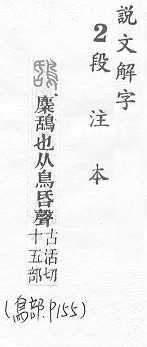 説文解字
2段注本
鴰 麋鴰也从鳥昏聲
古活切
十五部
(鳥部.P155)